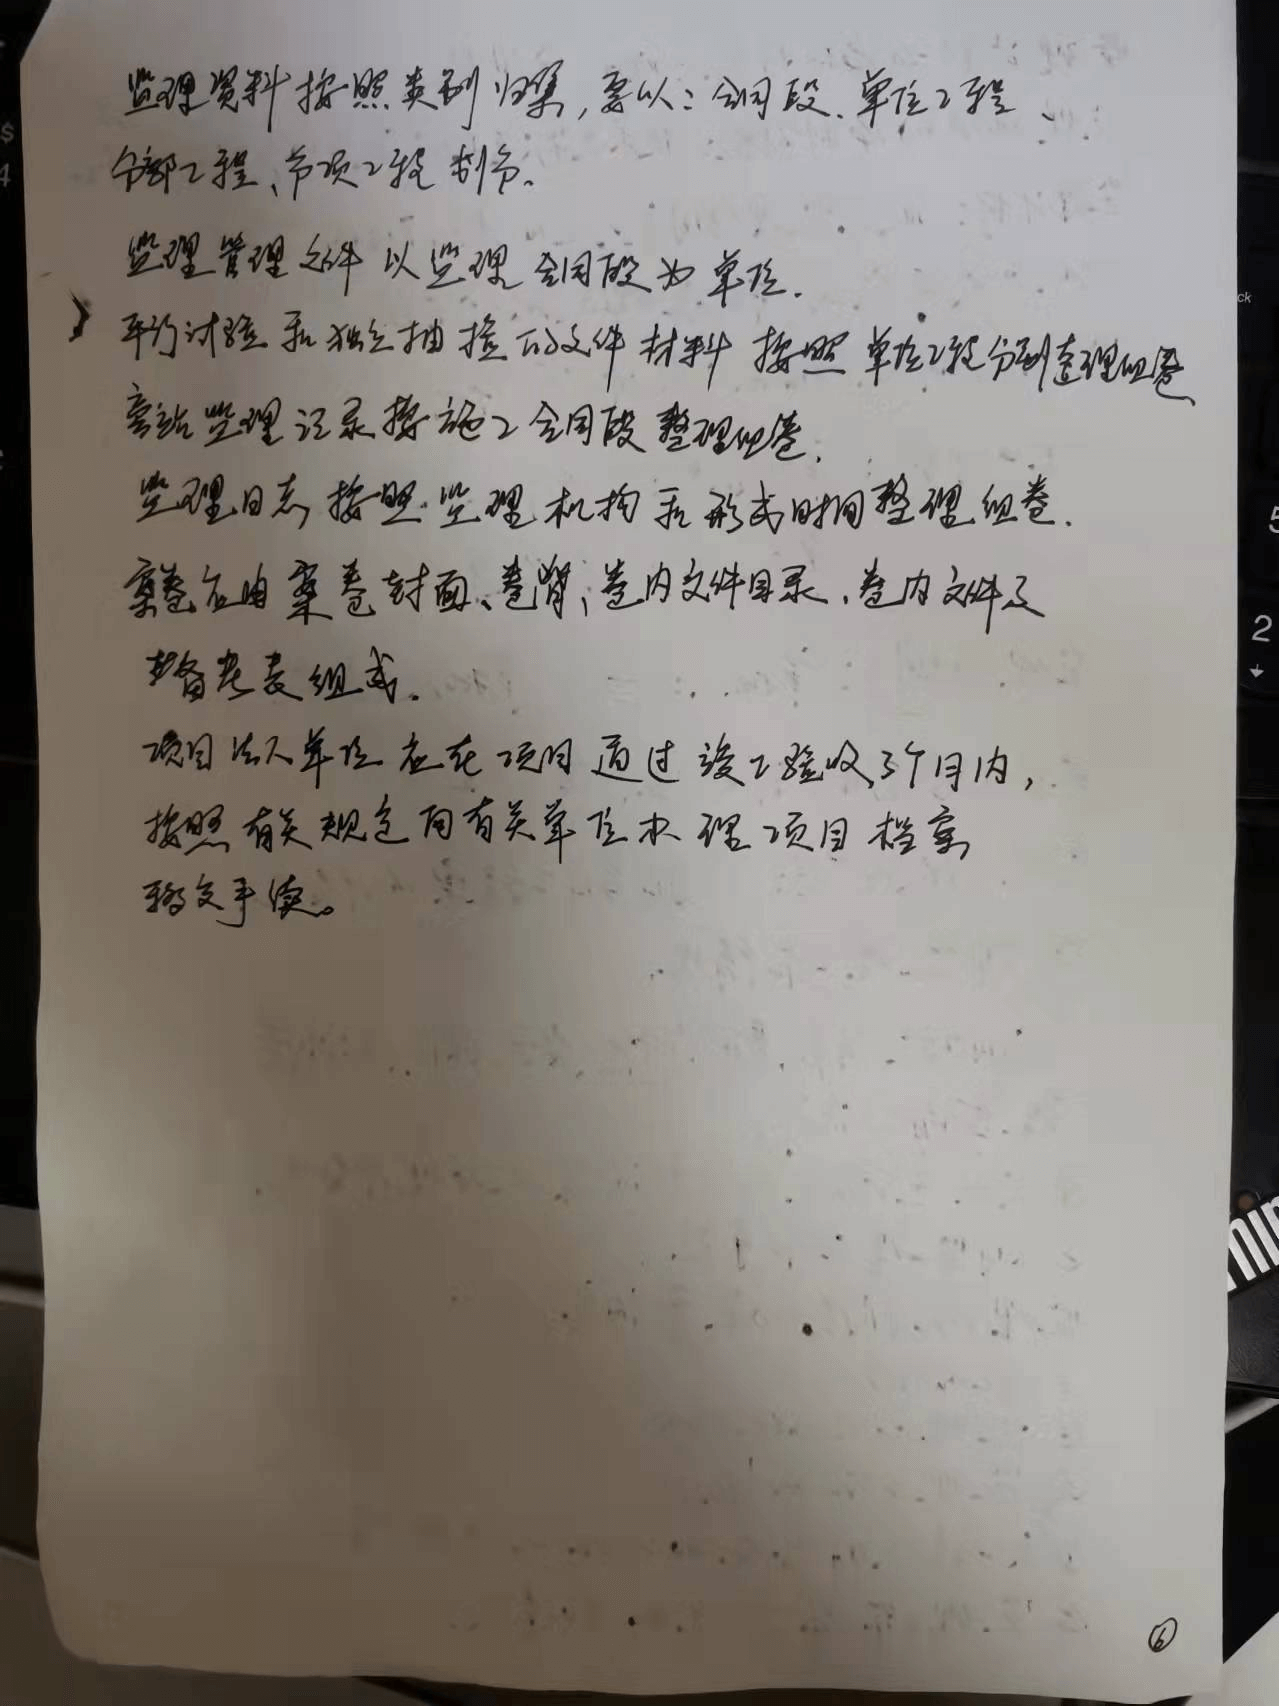 监理资料按照类别归集,要以:合同段、单位工程、
分部工程、分项工程划分.
监理管理文件以监理合同段为单位.
平行试验和独立抽检的文件材料按照单位工程分别整理组卷
旁站监理记录按施工合同段整理组卷.
监理日志按照监理机构和形成时间整理组卷.
案卷应由案卷封面、卷脊、卷内文件目录、卷内文件及
备考表组成.
项目法人单位应在项目通过竣工验收3个月内,
按照有关规定向有关单位办理项目档案
移交手续。
6
$
4
ck
5
2